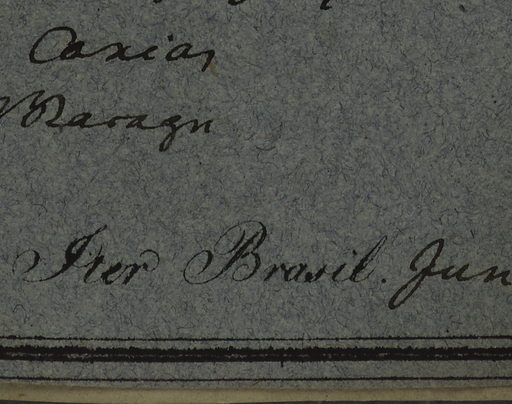 Caxias
Maragn
Iter Brasil. Jun